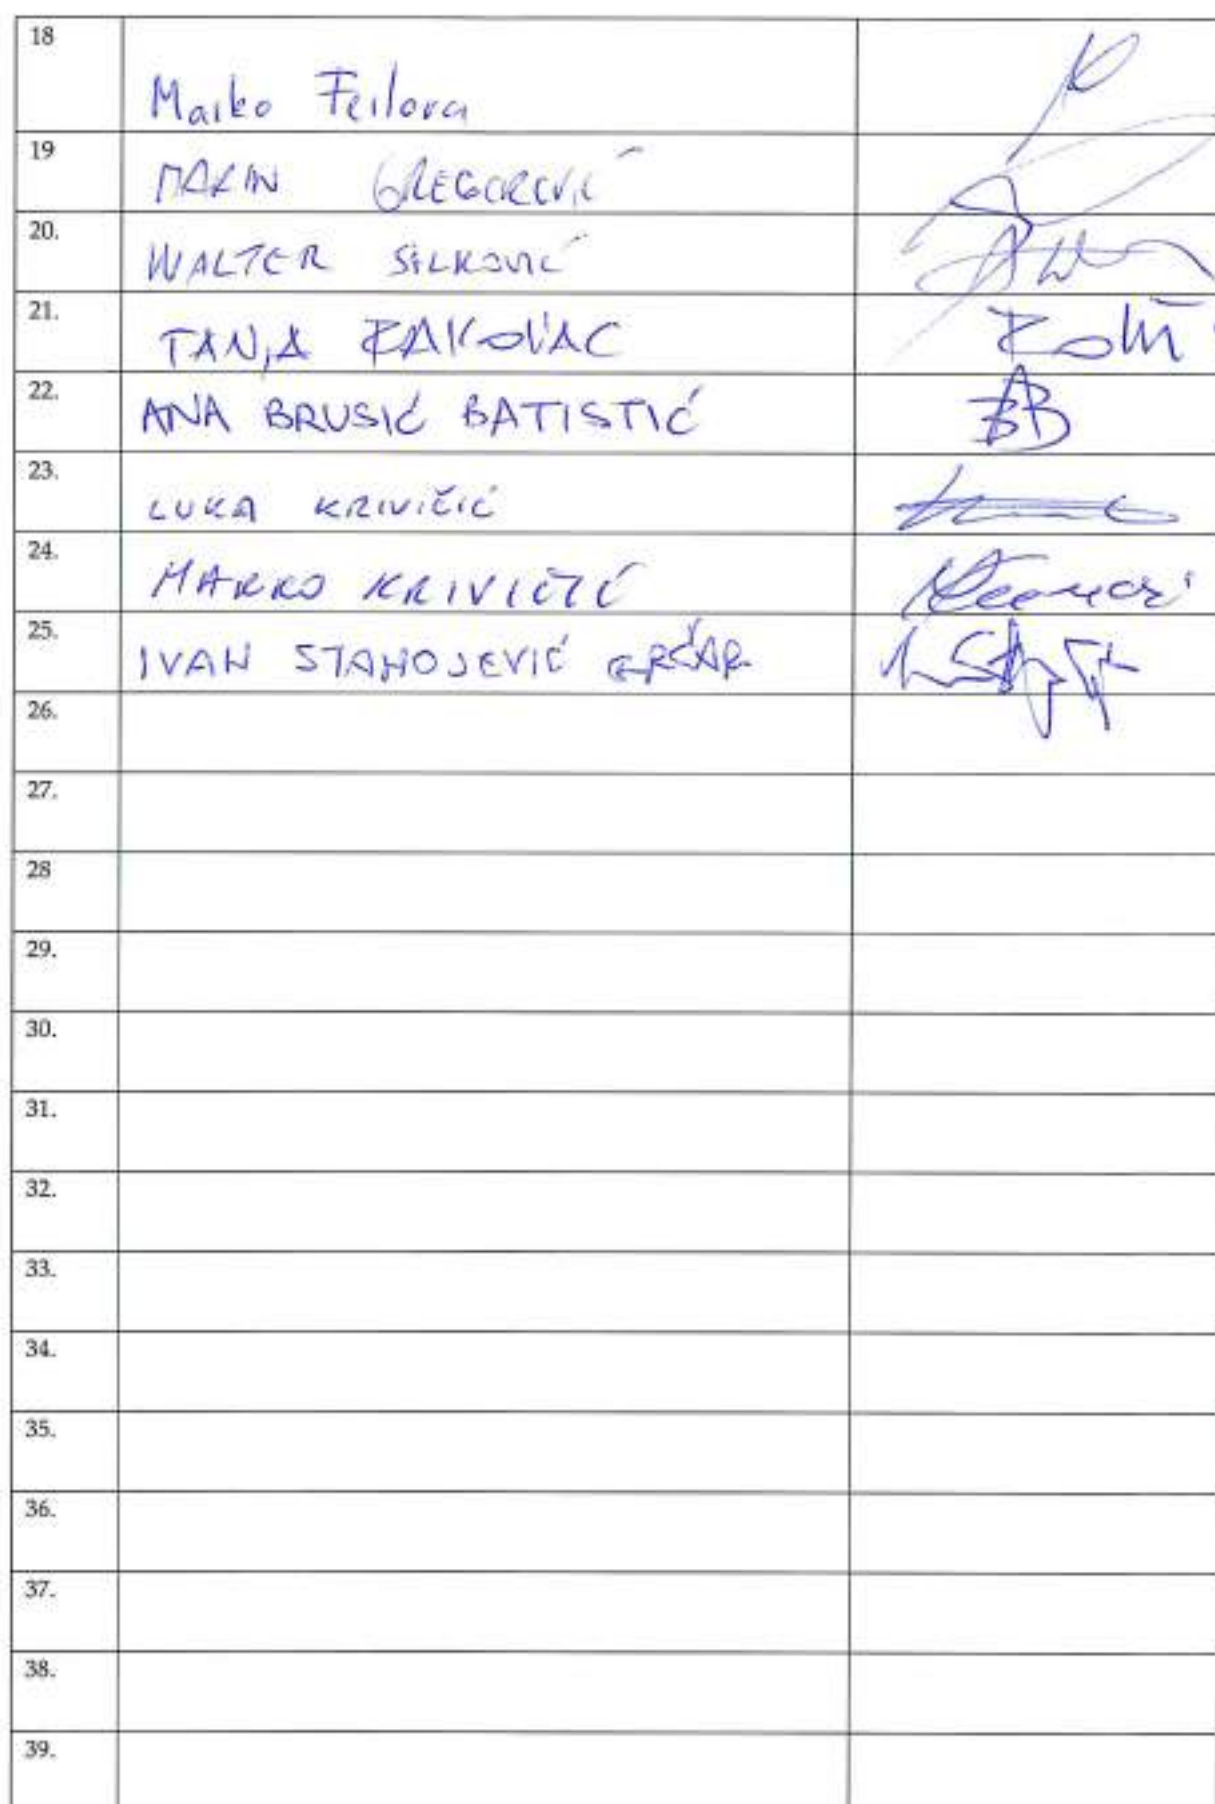 18 Marko Ferlora
19 MARIN GREGOROVIĆ
20. WALTER SALKOVIĆ
21. TANJA RAKOVAC
22. ANA BRUSIĆ BATISTIĆ BB
23. LUKA KRIVIČIĆ
24. MARKO KRIVIČIĆ
25. IVAN STANOJEVIĆ GRČAR
26.
27.
28
29.
30.
31.
32.
33.
34.
35.
36.
37.
38.
39.